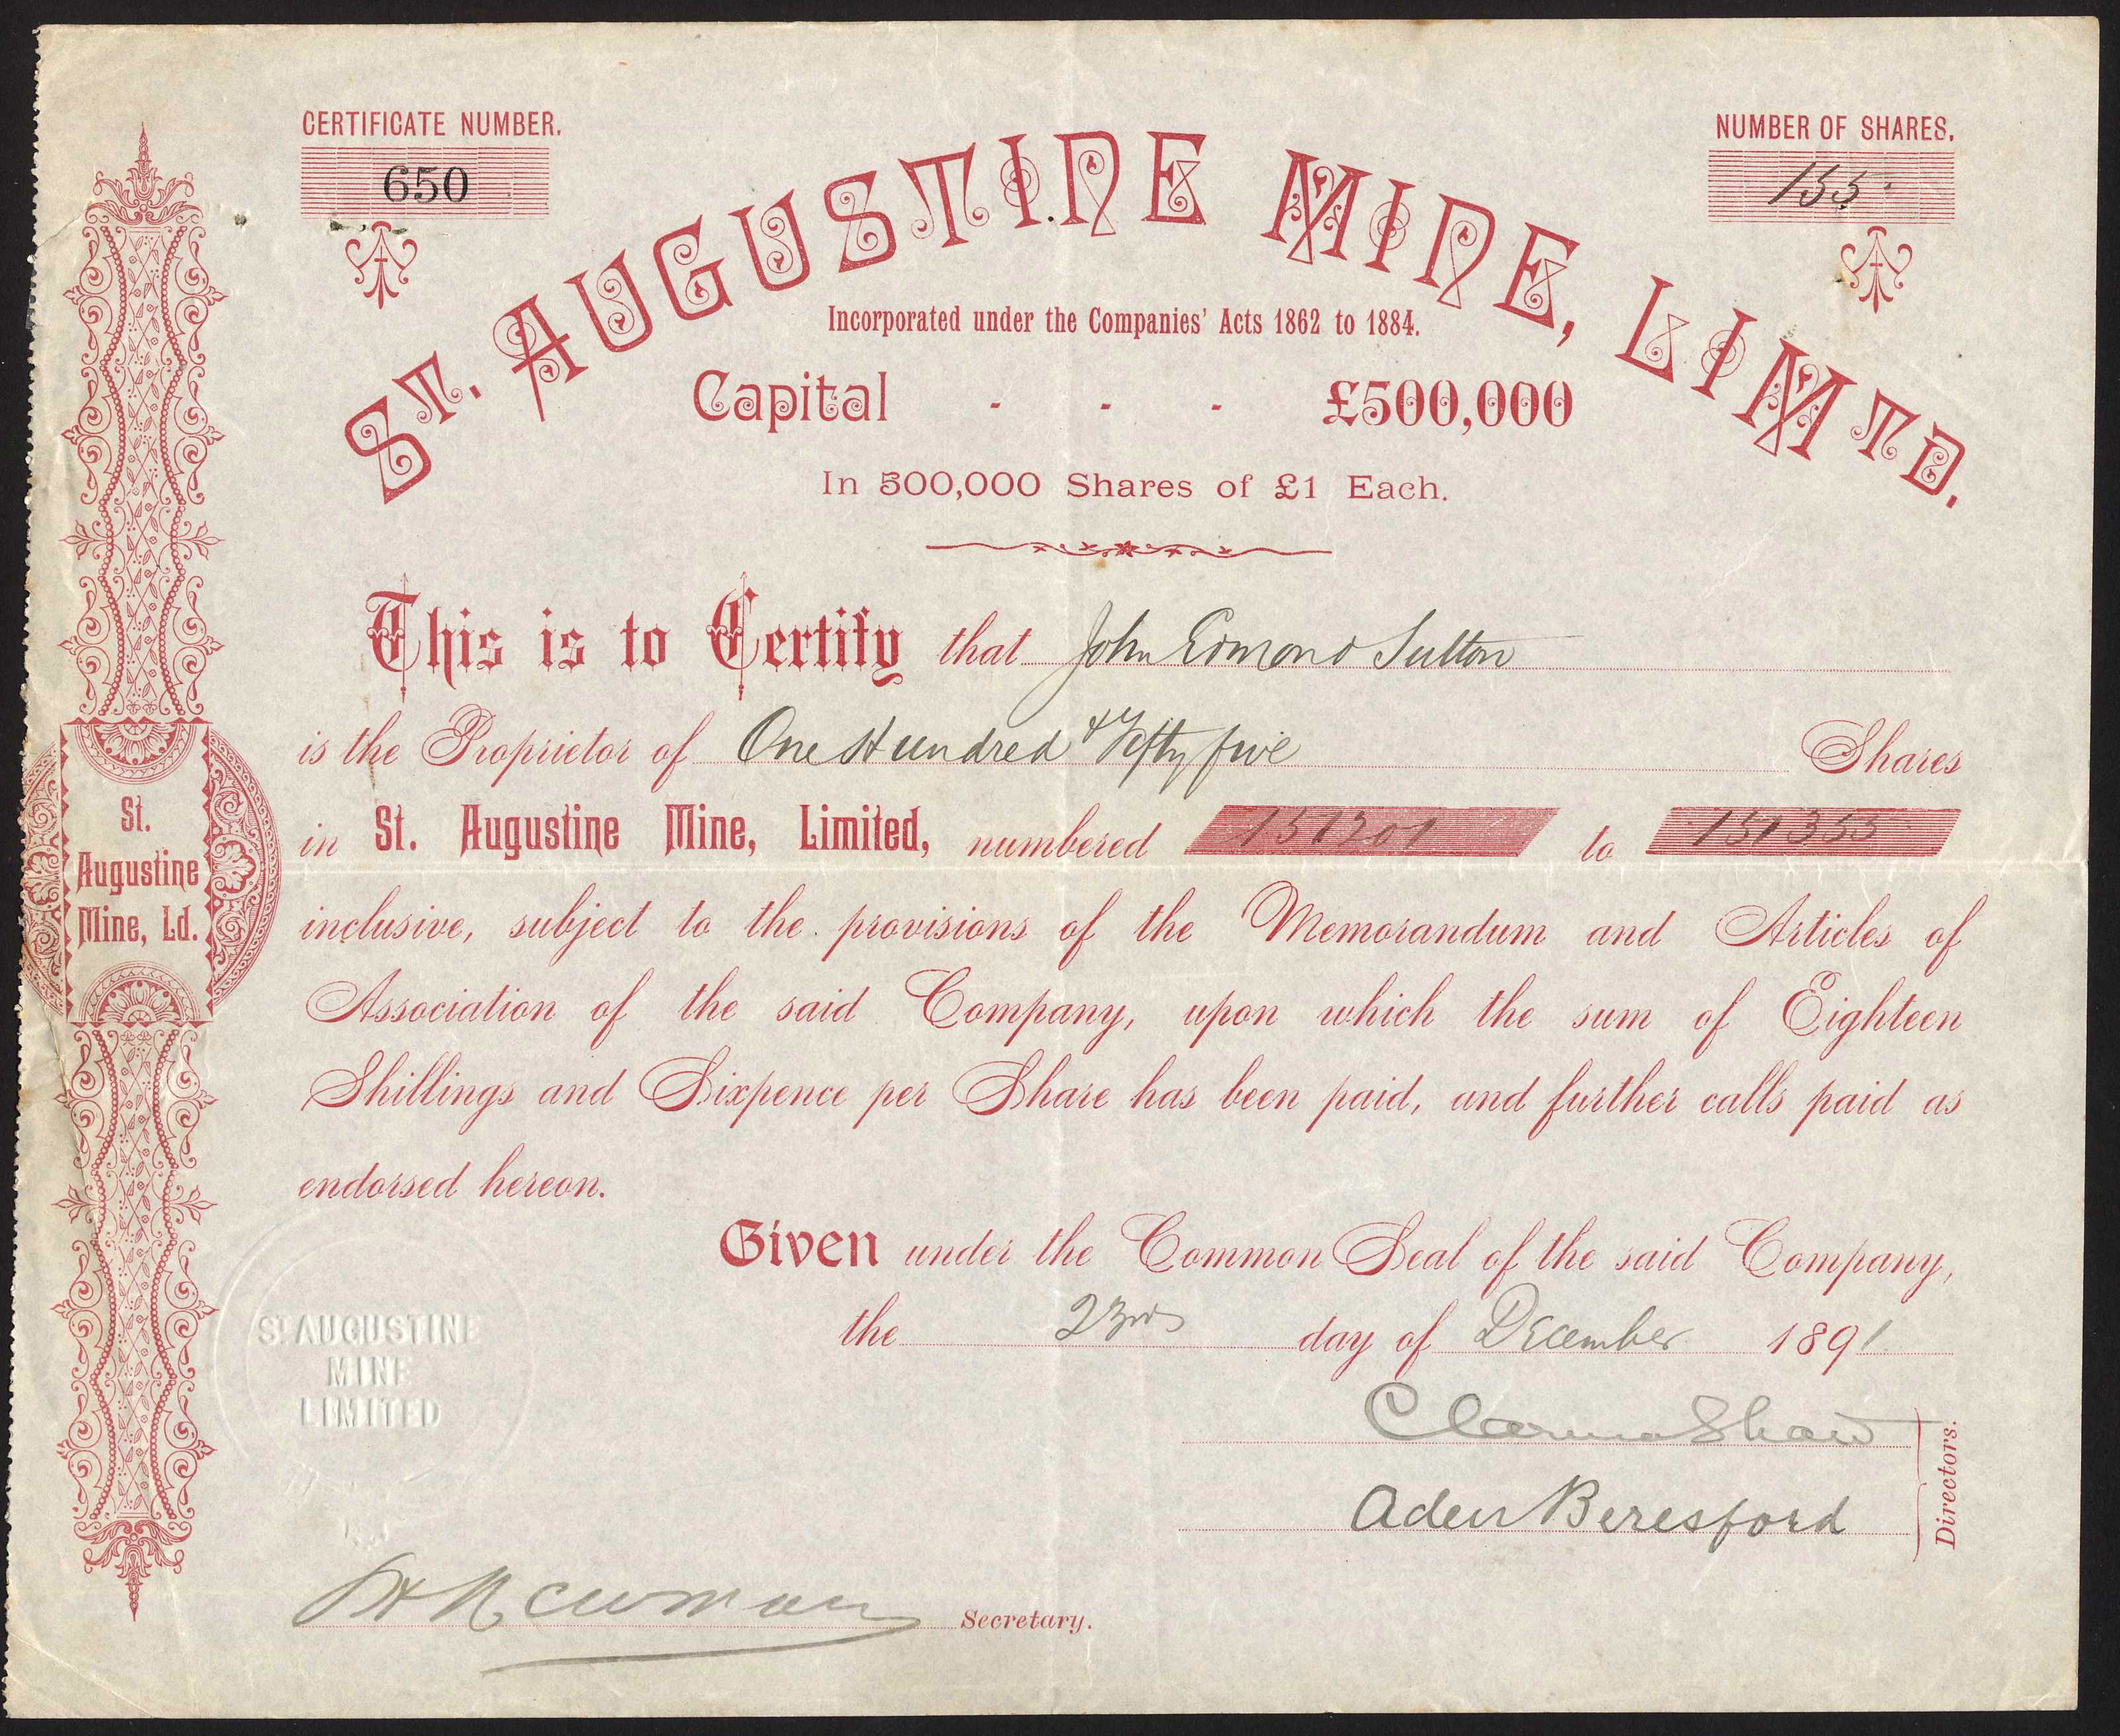 CERTIFICATE NUMBER.
650
NUMBER OF SHARES.
155
ST. AUGUSTINE MINE, LIMTD.
Incorporated under the Companies' Acts 1862 to 1884.
Capital - - - £500,000
In 500,000 Shares of £1 Each.
This is to Certify that John Edmond Sutton
is the Proprietor of One Hundred & Fifty five Shares
in St. Augustine Mine, Limited, numbered 151201 to 151355
inclusive, subject to the provisions of the Memorandum and Articles of
Association of the said Company, upon which the sum of Eighteen
Shillings and Sixpence per Share has been paid, and further calls paid as
endorsed hereon.
Given under the Common Seal of the said Company,
the 23rd day of December 1891
Shaw
Aden Beresford
Directors.
Newman Secretary.
St.
Augustine
Mine, Ld.
ST AUGUSTINE
MINE
LIMITED